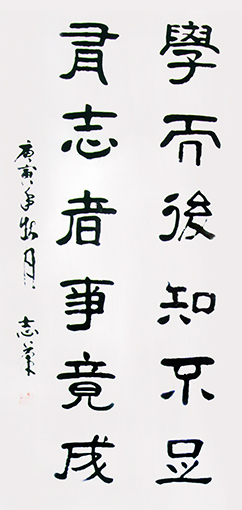 學而後知不足
有志者事竟成
庚寅年秋月 志